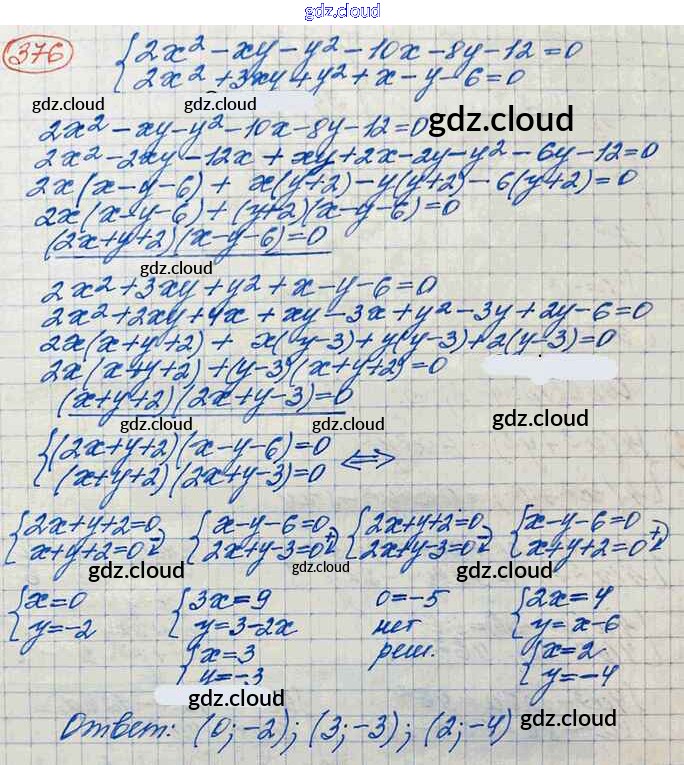 gdz.cloud
376
{2x² - xy - y² - 10x - 8y - 12 = 0
2x² + 3xy + y² + x - y - 6 = 0
gdz.cloud gdz.cloud
2x² - xy - y² - 10x - 8y - 12 = 0 gdz.cloud
2x² - 2xy - 12x + xy + 2x - 2y - y² - 6y - 12 = 0
2x(x - y - 6) + x(y+2) - y(y+2) - 6(y+2) = 0
2x(x - y - 6) + (y+2)(x - y - 6) = 0
(2x+y+2)(x-y-6) = 0
gdz.cloud
2x² + 3xy + y² + x - y - 6 = 0
2x² + 2xy + 4x + xy - 3x + y² - 3y + 2y - 6 = 0
2x(x+y+2) + x(y-3) + y(y-3) + 2(y-3) = 0
2x(x+y+2) + (y-3)(x+y+2) = 0
(x+y+2)(2x+y-3) = 0
gdz.cloud gdz.cloud gdz.cloud
{(2x+y+2)(x-y-6) = 0
(x+y+2)(2x+y-3) = 0 ⟺
{2x+y+2=0 {x-y-6=0 {2x+y+2=0 {x-y-6=0
x+y+2=0 2x+y-3=0 2x+y-3=0 x+y+2=0
gdz.cloud gdz.cloud gdz.cloud gdz.cloud
{x=0 {3x=9 0=-5 {2x=4
y=-2 y=3-2x нет y=x-6
{x=3 реш. {x=2
y=-3 y=-4
gdz.cloud
Ответ: (0; -2); (3; -3); (2; -4) gdz.cloud